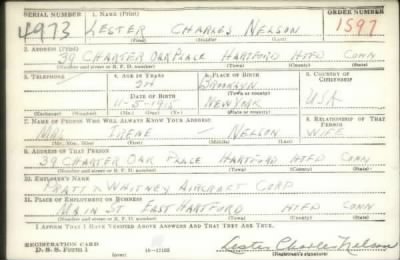 SERIAL NUMBER 1. NAME (Print) ORDER NUMBER
4973 LESTER CHARLES NELSON 1597
(First) (Middle) (Last)
2. ADDRESS (Print)
39 CHARTER OAK PLACE HARTFORD HTFD CONN
(Number and street or R. F. D. number) (Town) (County) (State)
3. TELEPHONE 4. AGE IN YEARS 5. PLACE OF BIRTH 6. COUNTRY OF CITIZENSHIP
BROOKLYN
DATE OF BIRTH (Town or county)
11-5-1915 NEW YORK USA
(Exchange) (Number) (Mo.) (Day) (Yr.) (State or country)
7. NAME OF PERSON WHO WILL ALWAYS KNOW YOUR ADDRESS 8. RELATIONSHIP OF THAT PERSON
MRS. IRENE — NELSON WIFE
(Mr., Mrs., Miss) (First) (Middle) (Last)
9. ADDRESS OF THAT PERSON
39 CHARTER OAK PLACE HARTFORD HTFD CONN
(Number and street or R. F. D. number) (Town) (County) (State)
10. EMPLOYER'S NAME
PRATT & WHITNEY AIRCRAFT CORP
11. PLACE OF EMPLOYMENT OR BUSINESS
MAIN ST EAST HARTFORD HTFD CONN
(Number and street or R. F. D. number) (Town) (County) (State)
I AFFIRM THAT I HAVE VERIFIED ABOVE ANSWERS AND THAT THEY ARE TRUE.
REGISTRATION CARD
D. S. S. Form 1 (over) Lester Charles Nelson
(Registrant's signature)